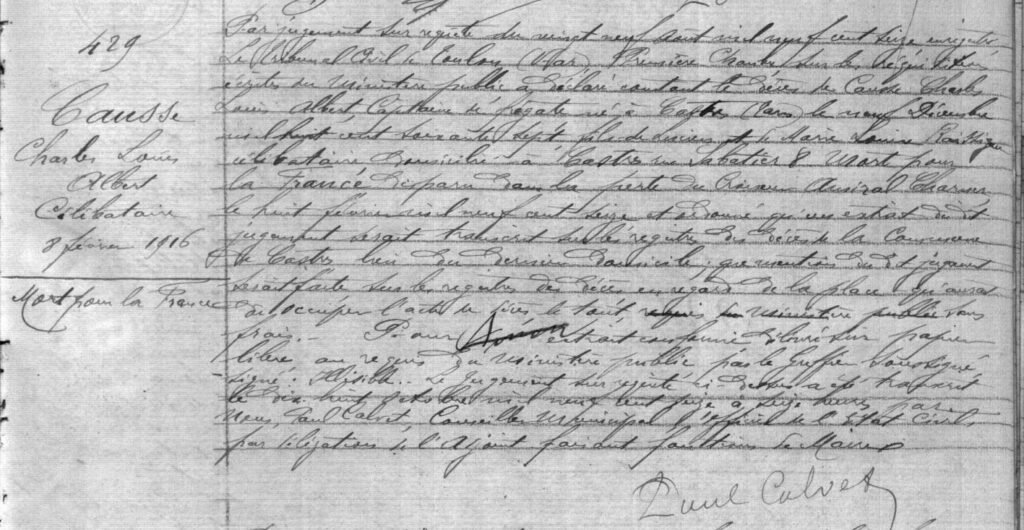 429
Causse
Charles Louis
Albert
Célibataire
8 février 1916
Mort pour la France
Par jugement sur requête du vingt neuf août mil neuf cent seize enregistré
Le Tribunal Civil de Toulon (Var) Première Chambre sur les réquisitions
écrites du Ministère public a déclaré constant le décès de Causse Charles
Louis Albert Capitaine de frégate né à Castres (Tarn) le neuf Décembre
mil huit cent soixante sept fils de et de Marie Louise
célibataire domicilié à Castres rue Sabatier 8 Mort pour
la France disparu dans la perte du Croiseur Amiral Charner
le huit février mil neuf cent seize et ordonné qu'un extrait du dit
jugement serait transcrit sur les registres des décès de la Commune
de Castres lieu du dernier domicile, que mention du dit jugement
serait faite sur les registres des décès en regard de la place qu'aurait
dû occuper l'acte de décès le tout requis du ministère public sans
frais. - Pour extrait conforme délivré sur papier
libre au requis du Ministère public par le Greffier soussigné
signé : Illisible. - Le jugement sur requête ci dessus a été transcrit
le dix huit octobre mil neuf cent seize à seize heures par
Nous, Paul Calvet, Conseiller Municipal Officier de l'Etat Civil
par délégation de l'Adjoint faisant fonctions de Maire
Paul Calvet